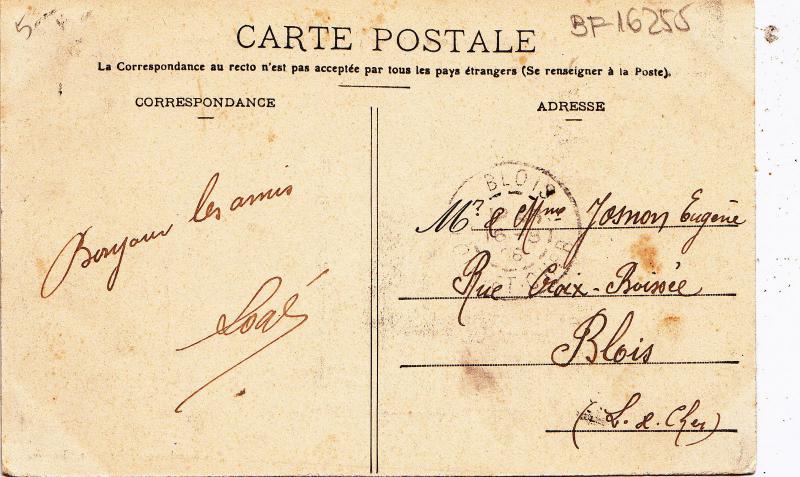 BF16255
CARTE POSTALE
La Correspondance au recto n'est pas acceptée par tous les pays étrangers (Se renseigner à la Poste).
CORRESPONDANCE
ADRESSE
BLOIS
Bonjour les amis
Mr. & Mme Josnon Eugène
Rue Croix-Boissée
Blois
(L. & Cher)